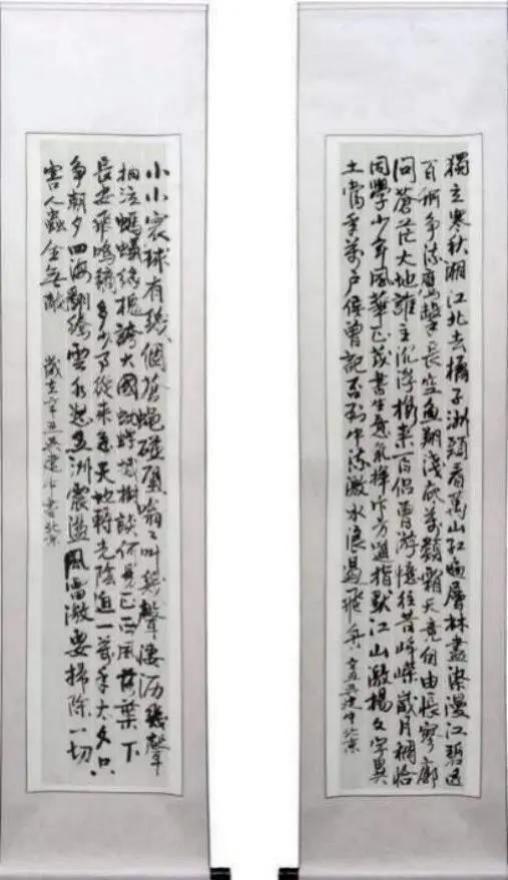 獨立寒秋湘江北去橘子洲頭看萬山紅遍層林盡染漫江碧透
百舸争流鷹擊長空魚翔淺底萬類霜天竞自由悵寥廓
问蒼茫大地誰主沉浮携来百侣曾游憶往昔崢嶸歲月稠恰
同學少年風華正茂書生意氣揮斥方遒指點江山激揚文字糞
土當年萬户侯曾記否到中流激水浪遏飛舟 辛丑 北京
小小寰球有幾個蒼蝇碰壁嗡々叫幾聲凄厉幾聲
抽泣螞蟻缘槐誇大國蚍蜉撼樹談何易正西風落葉下
長安飛鳴鏑多少事從来急天地轉光陰迫一萬年太久只
争朝夕四海翻騰雲水怒五洲震盪風雷激要掃除一切
害人蟲全無敵 歲在辛丑 書北京